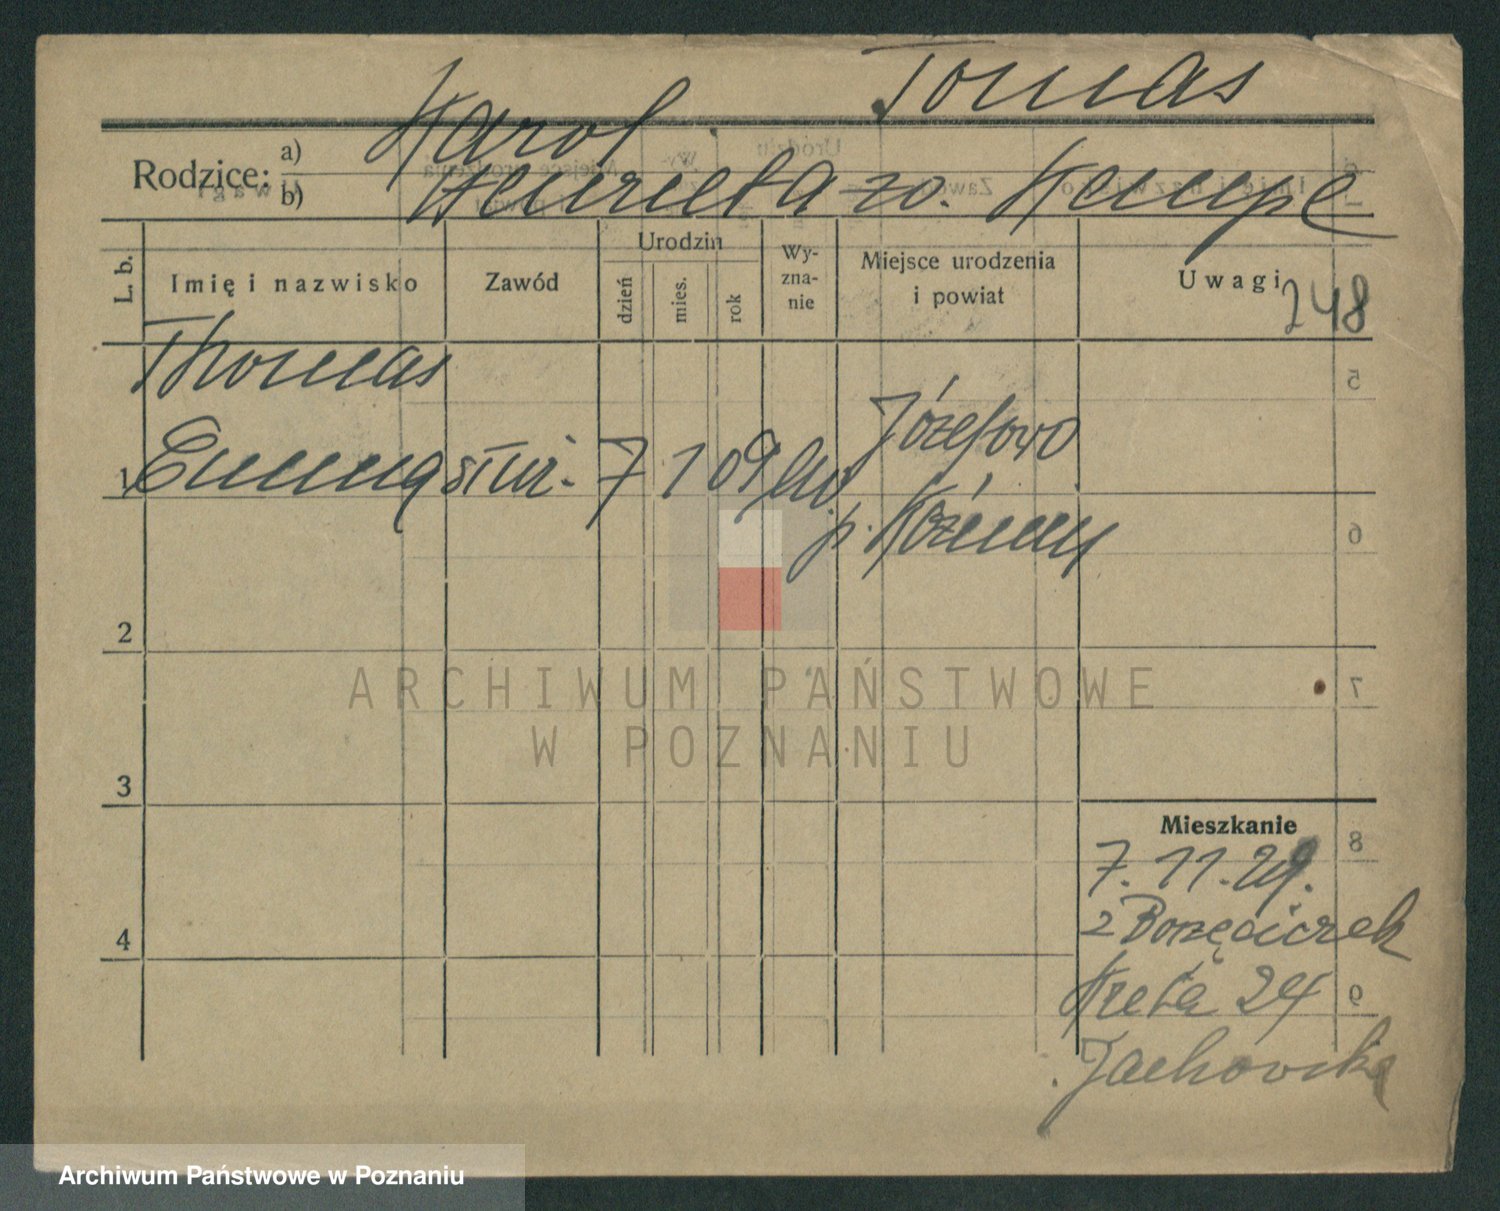 Tomas
Karol
Rodzice: a)
b) Henrieta zo. Kempe
L. b.
Imię i nazwisko
Zawód
Urodzin
dzień
mies.
rok
Wy-
zna-
nie
Miejsce urodzenia
i powiat
Uwagi
248
Thomas
1 Emma służ. 7 1 09 Józefowo
p. Koźmin
2
3
4
Mieszkanie
7.11.29.
z Borzęciczek
Kręta 24
5
6
7
8
9
ARCHIWUM PAŃSTWOWE
W POZNANIU
Archiwum Państwowe w Poznaniu